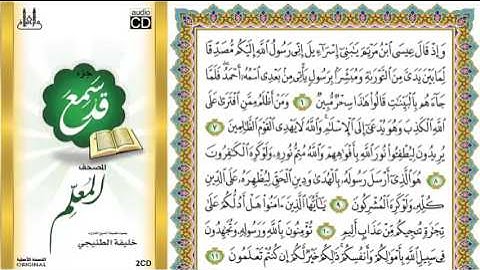 audio
CD
جزء
قد سمع
المصحف
المعلم
خليفة الطنيجي
النسخة الأصلية
ORIGINAL
2CD
وَإِذْ قَالَ عِيسَى ٱبْنُ مَرْيَمَ يَٰبَنِىٓ إِسْرَٰٓءِيلَ إِنِّى رَسُولُ ٱللَّهِ إِلَيْكُم مُّصَدِّقًا
لِّمَا بَيْنَ يَدَىَّ مِنَ ٱلتَّوْرَىٰةِ وَمُبَشِّرًۢا بِرَسُولٍ يَأْتِى مِنۢ بَعْدِى ٱسْمُهُۥٓ أَحْمَدُ فَلَمَّا
جَآءَهُم بِٱلْبَيِّنَٰتِ قَالُوا۟ هَٰذَا سِحْرٌ مُّبِينٌ ٦ وَمَنْ أَظْلَمُ مِمَّنِ ٱفْتَرَىٰ عَلَى
ٱللَّهِ ٱلْكَذِبَ وَهُوَ يُدْعَىٰٓ إِلَى ٱلْإِسْلَٰمِ وَٱللَّهُ لَا يَهْدِى ٱلْقَوْمَ ٱلظَّٰلِمِينَ ٧
يُرِيدُونَ لِيُطْفِـُٔوا۟ نُورَ ٱللَّهِ بِأَفْوَٰهِهِمْ وَٱللَّهُ مُتِمُّ نُورِهِۦ وَلَوْ كَرِهَ ٱلْكَٰفِرُونَ
٨ هُوَ ٱلَّذِىٓ أَرْسَلَ رَسُولَهُۥ بِٱلْهُدَىٰ وَدِينِ ٱلْحَقِّ لِيُظْهِرَهُۥ عَلَى ٱلدِّينِ
كُلِّهِۦ وَلَوْ كَرِهَ ٱلْمُشْرِكُونَ ٩ يَٰٓأَيُّهَا ٱلَّذِينَ ءَامَنُوا۟ هَلْ أَدُلُّكُمْ عَلَىٰ
تِجَٰرَةٍ تُنجِيكُم مِّنْ عَذَابٍ أَلِيمٍ ١٠ تُؤْمِنُونَ بِٱللَّهِ وَرَسُولِهِۦ وَتُجَٰهِدُونَ
فِى سَبِيلِ ٱللَّهِ بِأَمْوَٰلِكُمْ وَأَنفُسِكُمْ ذَٰلِكُمْ خَيْرٌ لَّكُمْ إِن كُنتُمْ تَعْلَمُونَ ١١